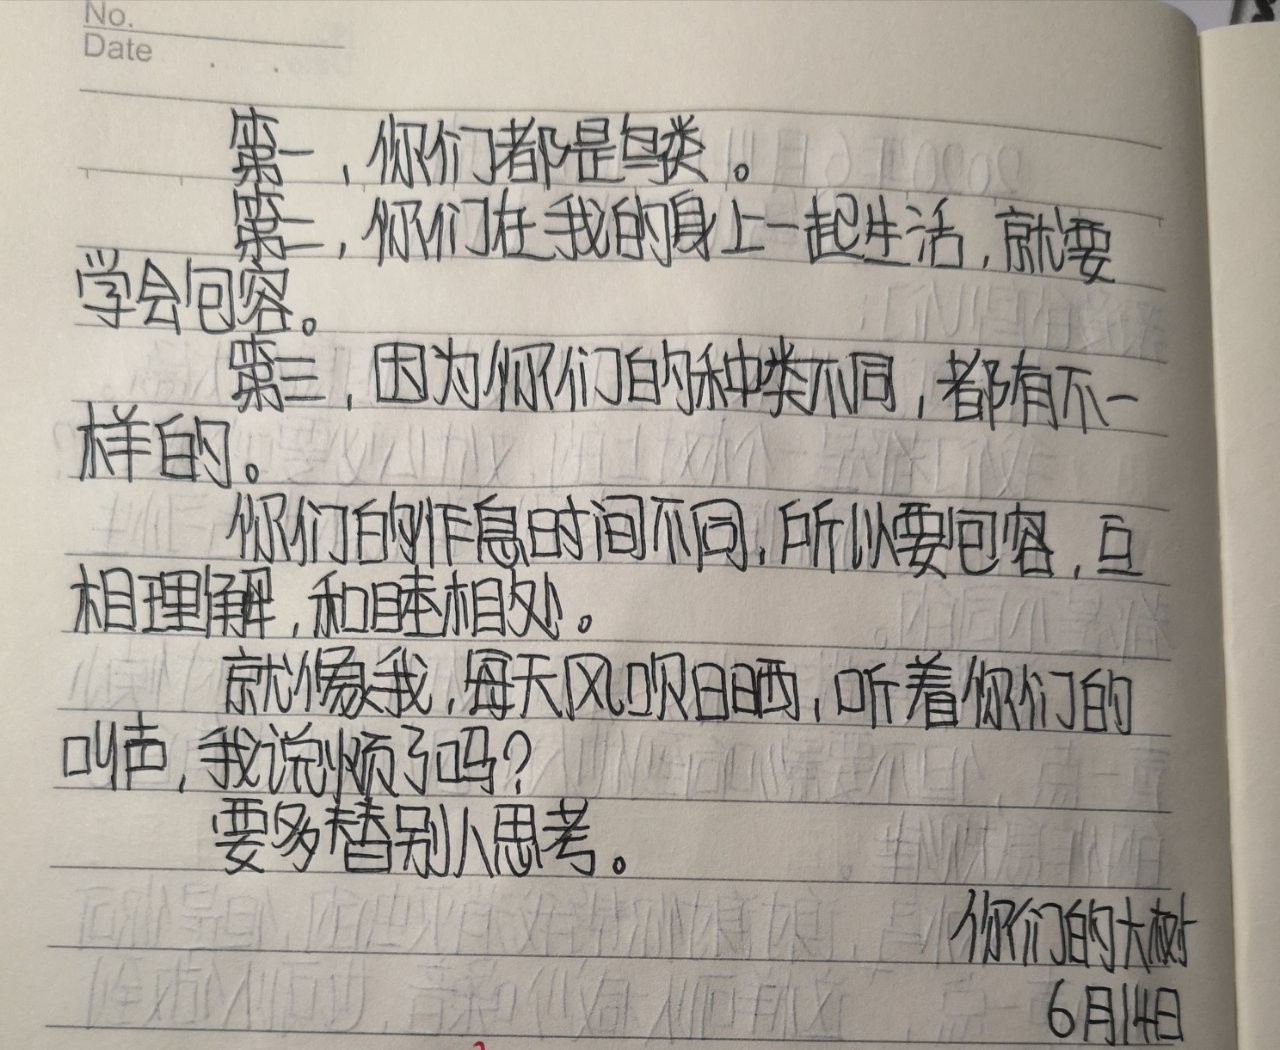 No.
Date
第一，你们都是鸟类。
第二，你们在我的身上一起生活，就要
学会包容。
第三，因为你们的种类不同，都有不一
样的。
你们的作息时间不同，所以要包容，互
相理解，和睦相处。
就像我，每天风吹日晒，听着你们的
叫声，我说烦了吗？
要多替别人思考。
你们的大树
6月14日